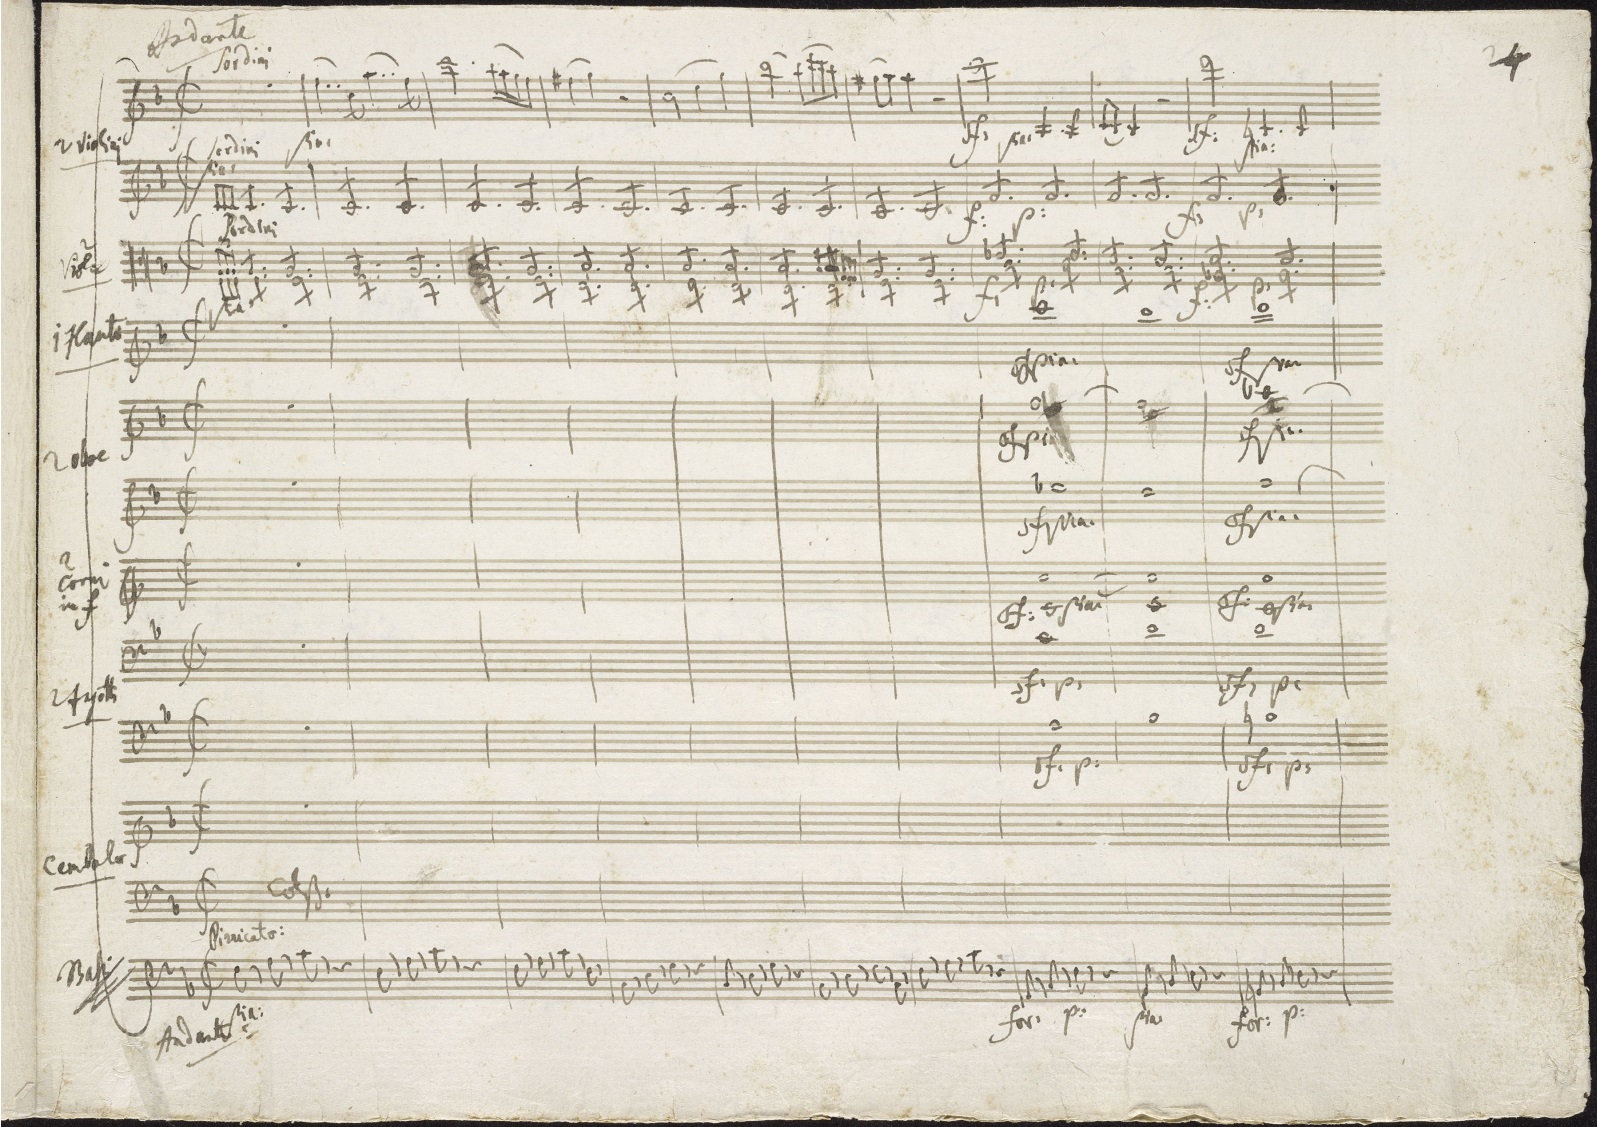 Andante
Sordini
24
2 Violini
Sordini
pia:
pia:
sf: pia:
sf: pia:
f: p:
f: p:
Sordini
Viole
pia:
f: p:
f: p:
1 Flauto
sfpia:
sf pia:
2 oboe
sfpia:
sfpia:
sfpia:
2
Corni
in f
sf: pia:
sf: pia:
2 fagotti
sf: p:
sf: p:
sf: p:
sf: p:
Cembalo
Col B:
Pizzicato:
Bassi
for: p:
pia:
for: p:
Andante pia: